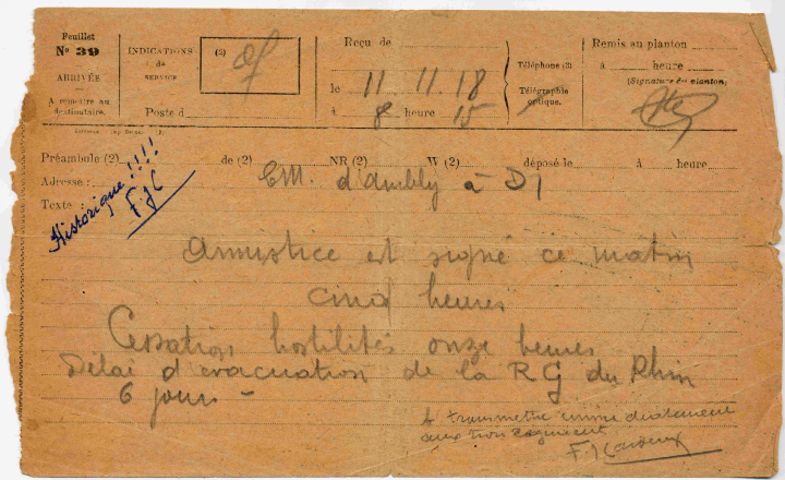 Feuillet
N° 39
ARRIVÉE
A remettre au
destinataire.
INDICATIONS
de
SERVICE
(2)
Poste d
Reçu de
le 11 11.18
à 8 heure 15
Téléphone (3)
Télégraphie
optique.
Remis au planton
à heure
(Signature du planton)
Préambule (2) de (2) NR (2) W (2) déposé le à heure
Adresse : d'Ambly à DI
Texte :
Historique !!!!
F.JC
Armistice est signé ce matin
cinq heures
Cessation hostilités onze heures
Délai d'évacuation de la RG du Rhin
6 jours -
à transmettre immédiatement
aux trois régiments